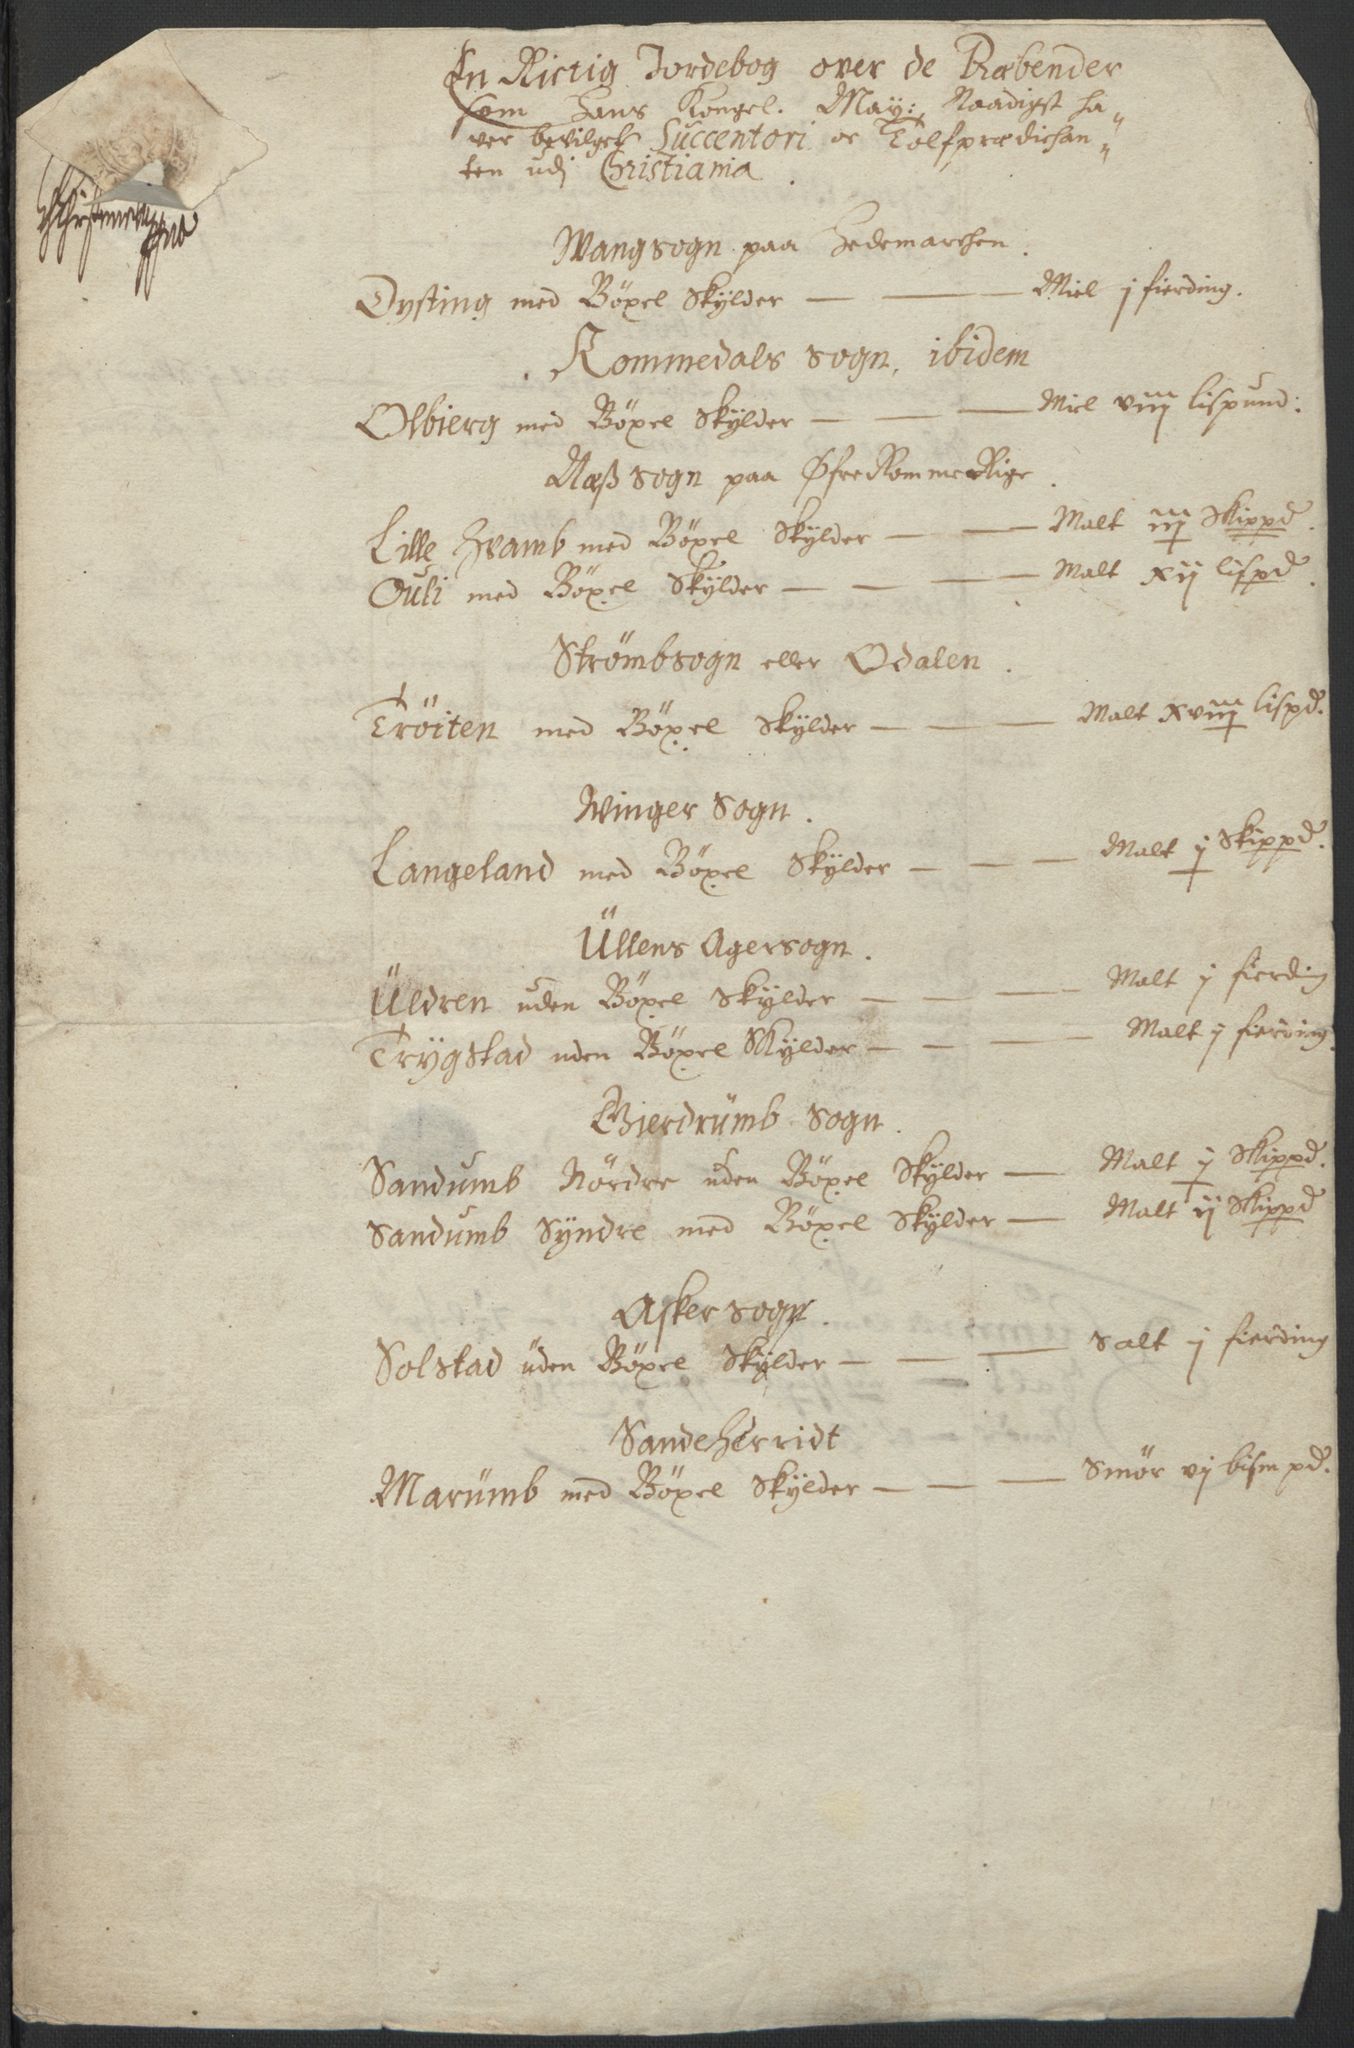 En Rictig Jordebog over de Præbender
som Hans Kongel. May: Naadigst ha„
ver bevilget Succentori oc Tolfprædichan„
ten udj Christiania.
Wangsogn paa Hedemarchen.
Oysting med Böxel Skÿlder — — Miel j fierding.
Rommedals sogn, ibidem
Olbierg med Böxel Skÿlder — — — Miel viij lispund:
Næß sogn paa ØfreRommeRige.
Lille Hvamb med Böxel Skÿlder — — Malt iij Skippd.
Ouli med Böxel Skÿlder — — — — Malt xij lispd.
Strömbsogn eller Odalen.
Tröiten med Böxel Skÿlder — — — Malt xviij lispd.
Winger Sogn.
Langeland med Böxel Skÿlder — — — Malt j Skippd.
Üllens Agersogn.
Üldren uden Böxel Skÿlder — — — Malt j fierding
Trÿgstad uden Böxel Skÿlder — — — Malt j fierding.
Gierdrümb Sogn.
Sandumb Nördre uden Böxel Skÿlder — Malt j Skippd.
Sandumb Sÿndre med Böxel Skÿlder — Malt ij Skippd
Asker sogn.
Solstad üden Böxel Skÿlder — — — Salt j fierding
SandeHerridt
Marümb med Böxel Skÿlder — — — Smör vj bism pd.